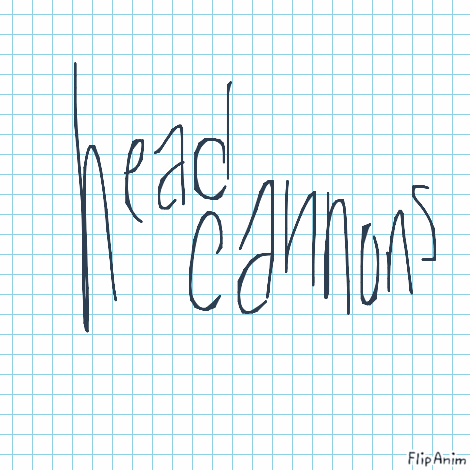 head
cannons
FlipAnim